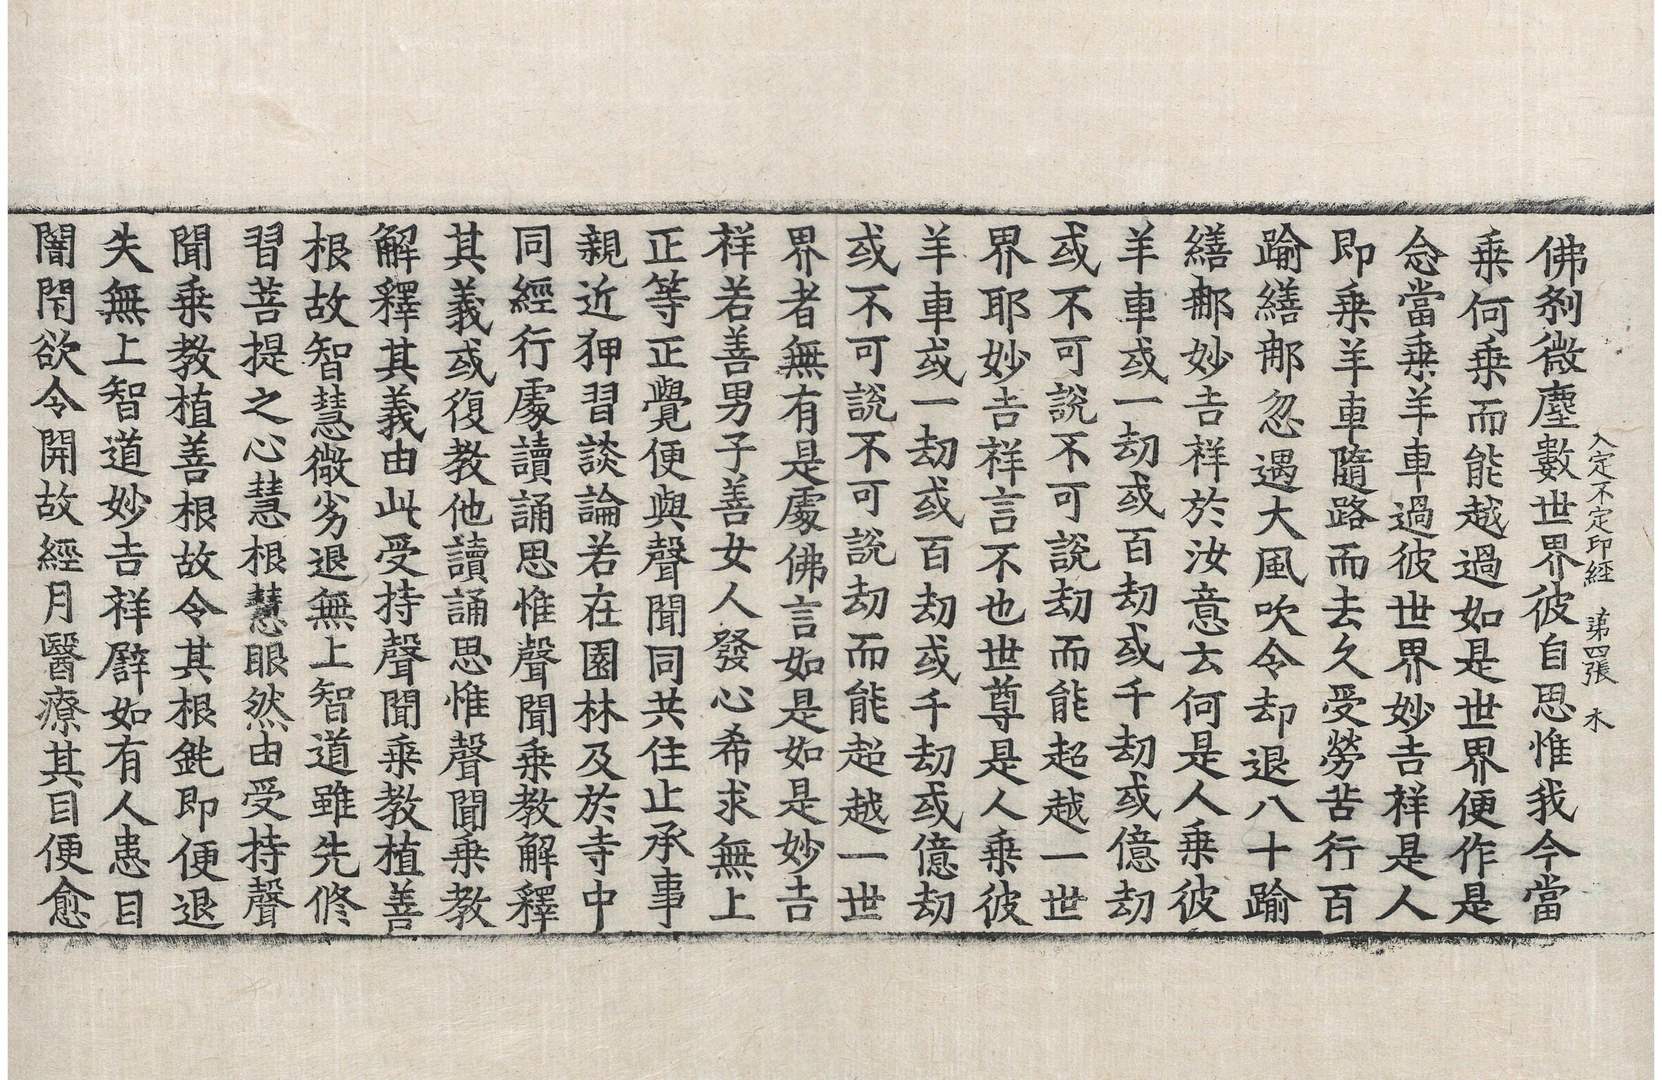 入定不定印經　第四張　木
佛刹微塵數世界彼自思惟我今當
乘何乘而能越過如是世界便作是
念當乘羊車過彼世界妙吉祥是人
即乘羊車隨路而去久受勞苦行百
踰繕那忽遇大風吹令却退八十踰
繕那妙吉祥於汝意云何是人乘彼
羊車或一劫或百劫或千劫或億劫
或不可說不可說劫而能超越一世
界耶妙吉祥言不也世尊是人乘彼
羊車或一劫或百劫或千劫或億劫
或不可說不可說劫而能超越一世
界者無有是處佛言如是如是妙吉
祥若善男子善女人發心希求無上
正等正覺便與聲聞同共住止承事
親近狎習談論若在園林及於寺中
同經行處讀誦思惟聲聞乘教解釋
其義或復教他讀誦思惟聲聞乘教
解釋其義由此受持聲聞乘教植善
根故智慧微劣退無上智道雖先修
習菩提之心慧根慧眼然由受持聲
聞乘教植善根故令其根鈍即便退
失無上智道妙吉祥譬如有人患目
闇閇欲令開故經月醫療其目便愈